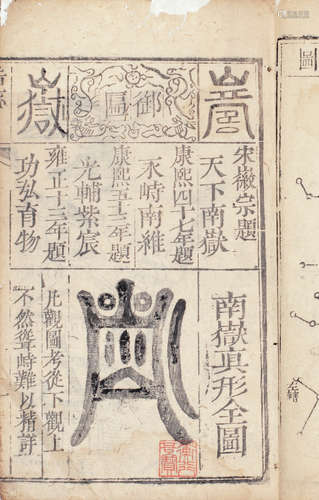 御區
宋徽宗題
天下南嶽
康熙四十七年題
永峙南維
康熙五十二年題
光輔紫宸
雍正十三年題
功弘育物
南嶽真形全圖
凡觀圖考從下觀上
不然聳峙難以精詳
圖